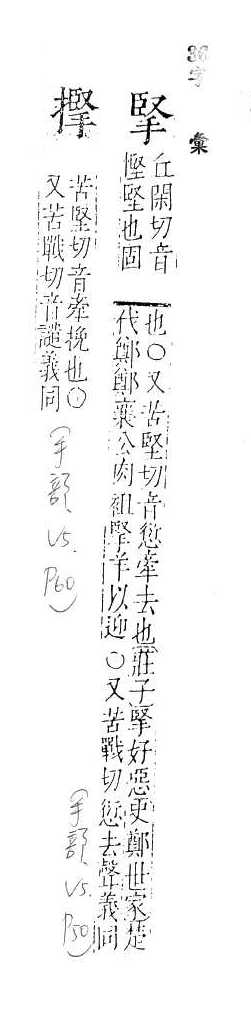 36字
彙
掔
丘閑切音
慳堅也固
也○又苦堅切音愆牽去也莊子掔好惡史鄭世家楚
代鄭鄭襄公肉袒掔羊以迎○又苦戰切愆去聲義同
(手部 V5. P50)
苦堅切音牽挽也○
又苦戰切音譴義同
(手部 V5. P60)